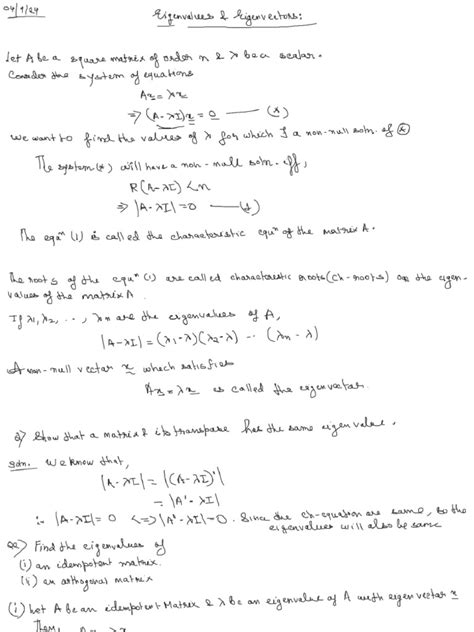 04/1/24
Eigenvalues & Eigenvectors:
Let A be a square matrix of order n & λ be a scalar.
Consider the system of equations
Ax = λx
⇒ (A-λI)x = 0 — (*)
We want to find the values of λ for which ∃ a non-null soln. of (*)
The system (*) will have a non-null soln. iff,
R(A-λI) < n
⇒ |A-λI| = 0 — (1)
The equⁿ (1) is called the characteristic equⁿ of the matrix A.
The roots of the equⁿ (1) are called characteristic roots (Ch-roots) or the eigen-
values of the matrix A.
If λ1, λ2, ..., λn are the eigenvalues of A,
|A-λI| = (λ1-λ)(λ2-λ) ... (λn-λ)
A non-null vector x which satisfies
Ax = λx is called the eigenvector.
Q) Show that a matrix & its transpose has the same eigen value.
Soln. We know that,
|A-λI| = |(A-λI)'|
= |A'-λI|
∴ |A-λI| = 0 <=> |A'-λI| = 0. Since the ch-equation are same, so the
eigenvalues will also be same
Q2) Find the eigenvalues of
(i) an idempotent matrix.
(ii) an orthogonal matrix
(i) Let A be an idempotent Matrix & λ be an eigenvalue of A with eigen vector x
Then, Ax = λx